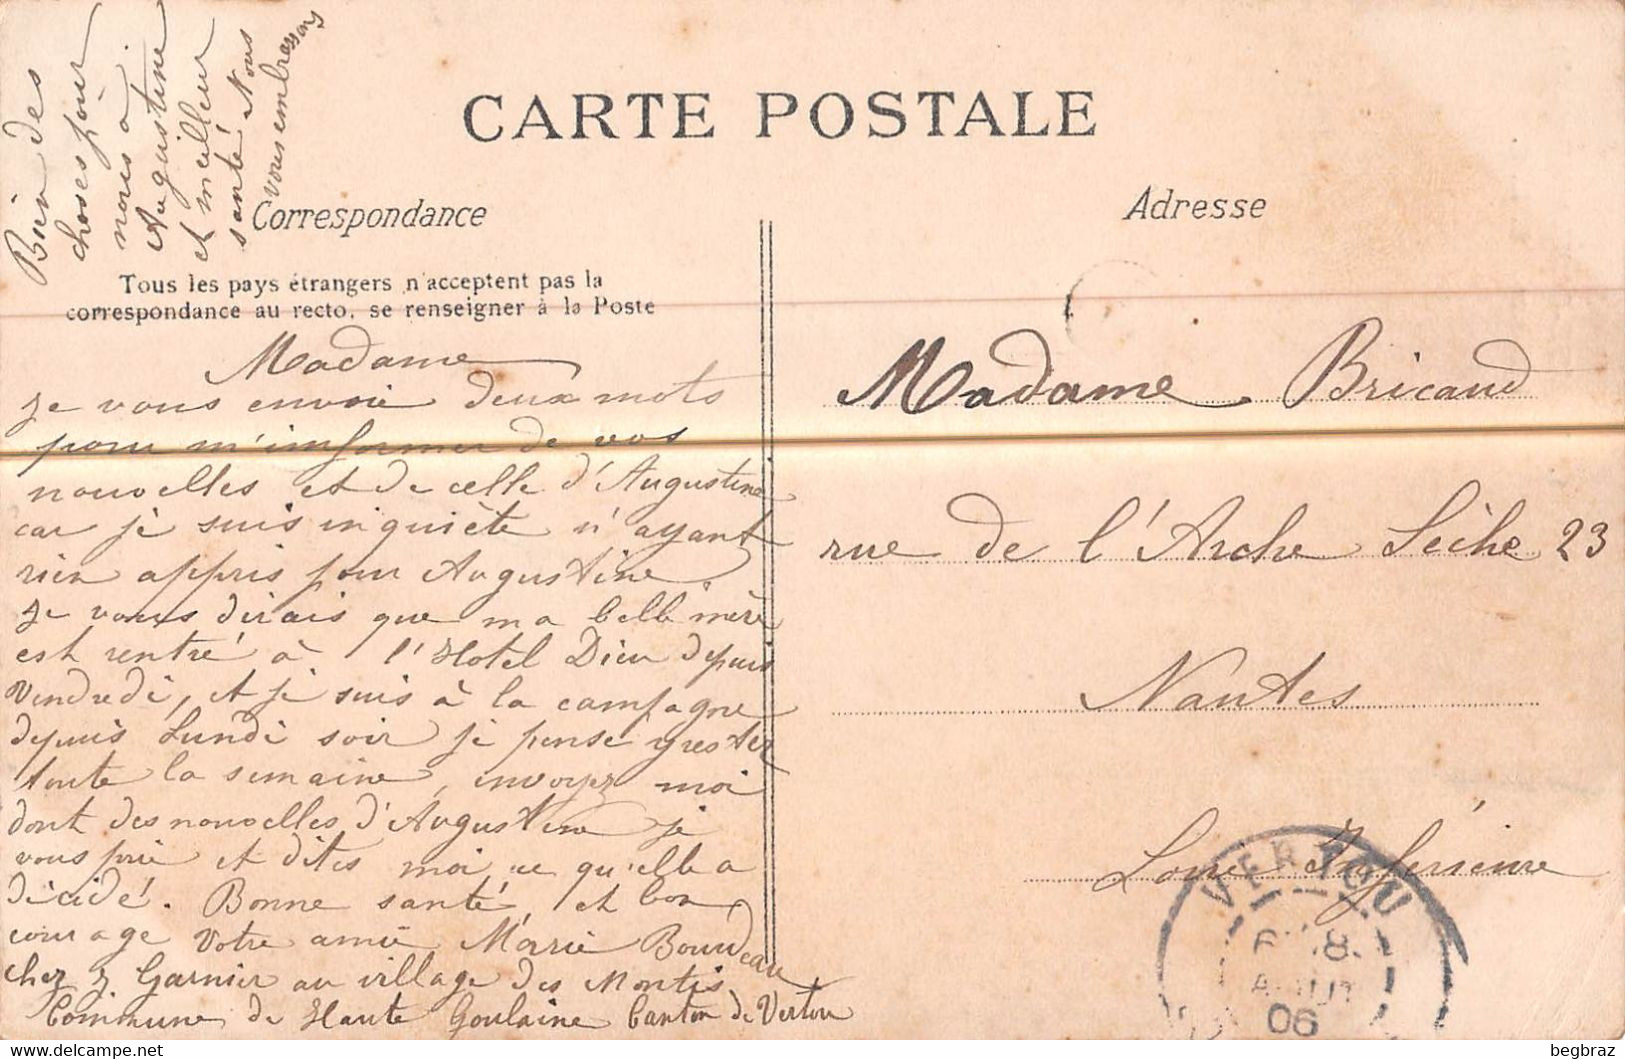 CARTE POSTALE
Correspondance
Adresse
Tous les pays étrangers n'acceptent pas la
correspondance au recto, se renseigner à la Poste
Madame
je vous envoie deux mots
pour m'informer de vos
nouvelles et de celle d'Augustine
car je suis inquiète n'ayant
rien appris pour Augustine
Je vous dirais que ma belle mère
est rentré à l'Hotel Dieu depuis
Vendredi, et je suis à la campagne
depuis Lundi soir je pense y rester
toute la semaine, envoyez moi
dont des nouvelles d'Augustine je
vous prie et dites moi ce qu'elle a
décidé. Bonne santé, et bon
courage Votre amie Marie Bourdeau
chez Garnier au village des Montis
Commune de Haute Goulaine Canton de Vertou
Bien des
choses pour
nous a
Augustine
et meilleur
santé Nous
vous embrassons
Madame Bricaud
rue de l'Arche Sèche 23
Nantes
Loire Inférieure
VERTOU
8
AOUT
06
begbraz